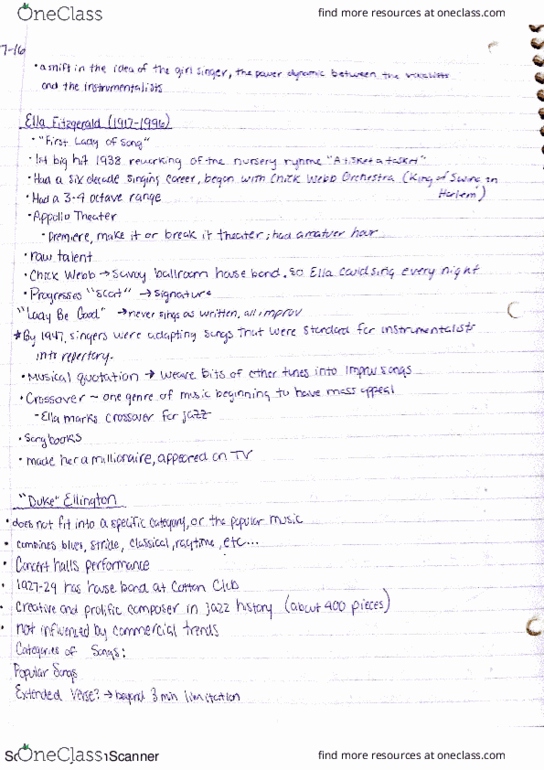 OneClass find more resources at oneclass.com
7-16
• a shift in the idea of the girl singer, the power dynamic between the vocalists
and the instrumentalists
Ella Fitzgerald (1917-1996)
• "First Lady of Song"
• 1st big hit 1938 reworking of the nursery rhyme "A tisket a tasket"
• Had a six decade singing career, began with Chick Webb Orchestra (King of Swing in
Harlem)
• Had a 3-4 octave range
• Appollo Theater
- Premiere, make it or break it theater; had amatuer hour
• raw talent
• Chick Webb → Savoy ballroom house band, so Ella could sing every night
• Progresses "Scat" → signature
"Lady Be Good" → never sings as written, all improv
*By 1947, singers were adapting songs that were standard for instrumentalists
into repertory.
• Musical quotation → weave bits of other tunes into improv songs
• Crossover ~ one genre of music beginning to have mass appeal
- Ella marks crossover for jazz
• Songbooks
• made her a millionaire, appeared on TV
"Duke" Ellington
• does not fit into a specific category, or the popular music
• combines blues, stride, classical, ragtime, etc...
• Concert halls performance
• 1927-29 has house band at Cotton Club
• creative and prolific composer in jazz history (about 400 pieces)
• not influenced by commercial trends
Categories of Songs:
Popular Songs
Extended Verse? → beyond 3 min limitation
OneClass Scanner find more resources at oneclass.com